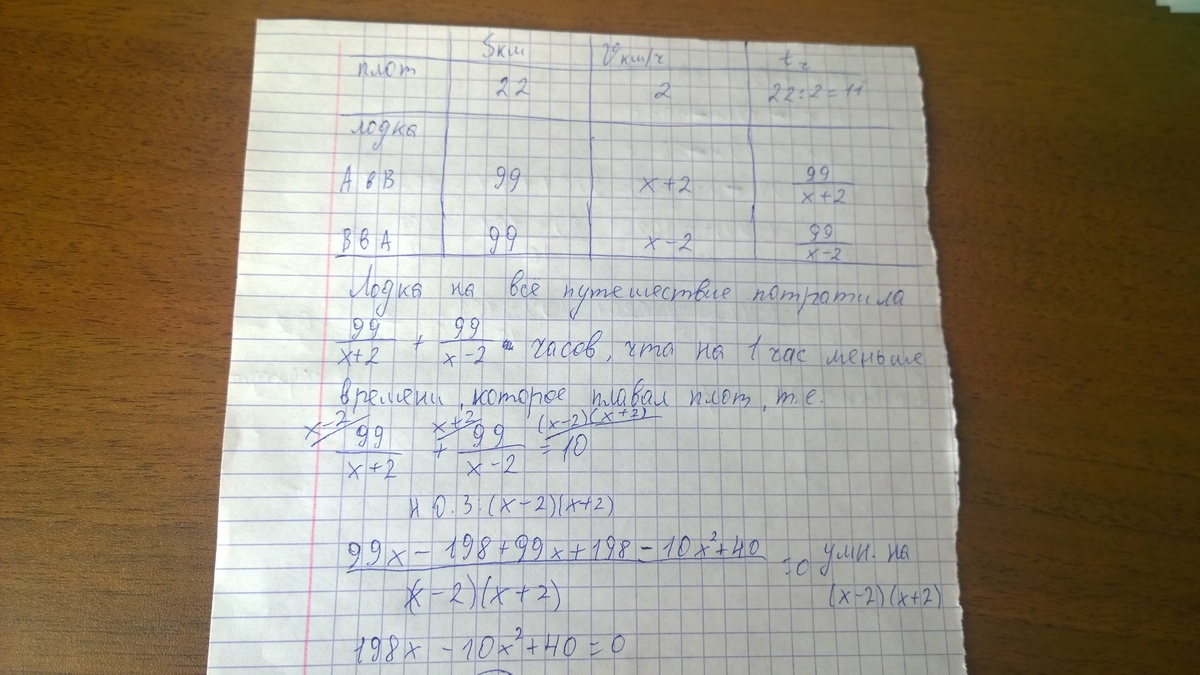 Sкм Vкм/ч tч
плот 22 2 22:2=11
лодка
А в В 99 x+2 99/(x+2)
В в А 99 x-2 99/(x-2)
Лодка на всё путешествие потратила
99/(x+2) + 99/(x-2) часов, что на 1 час меньше
времени, которое плавал плот, т.е.
x-2 x+2 (x-2)(x+2)
99/(x+2) + 99/(x-2) = 10
НОЗ: (x-2)(x+2)
(99x - 198 + 99x + 198 - 10x² + 40)/((x-2)(x+2)) = 0 умн. на (x-2)(x+2)
198x - 10x² + 40 = 0